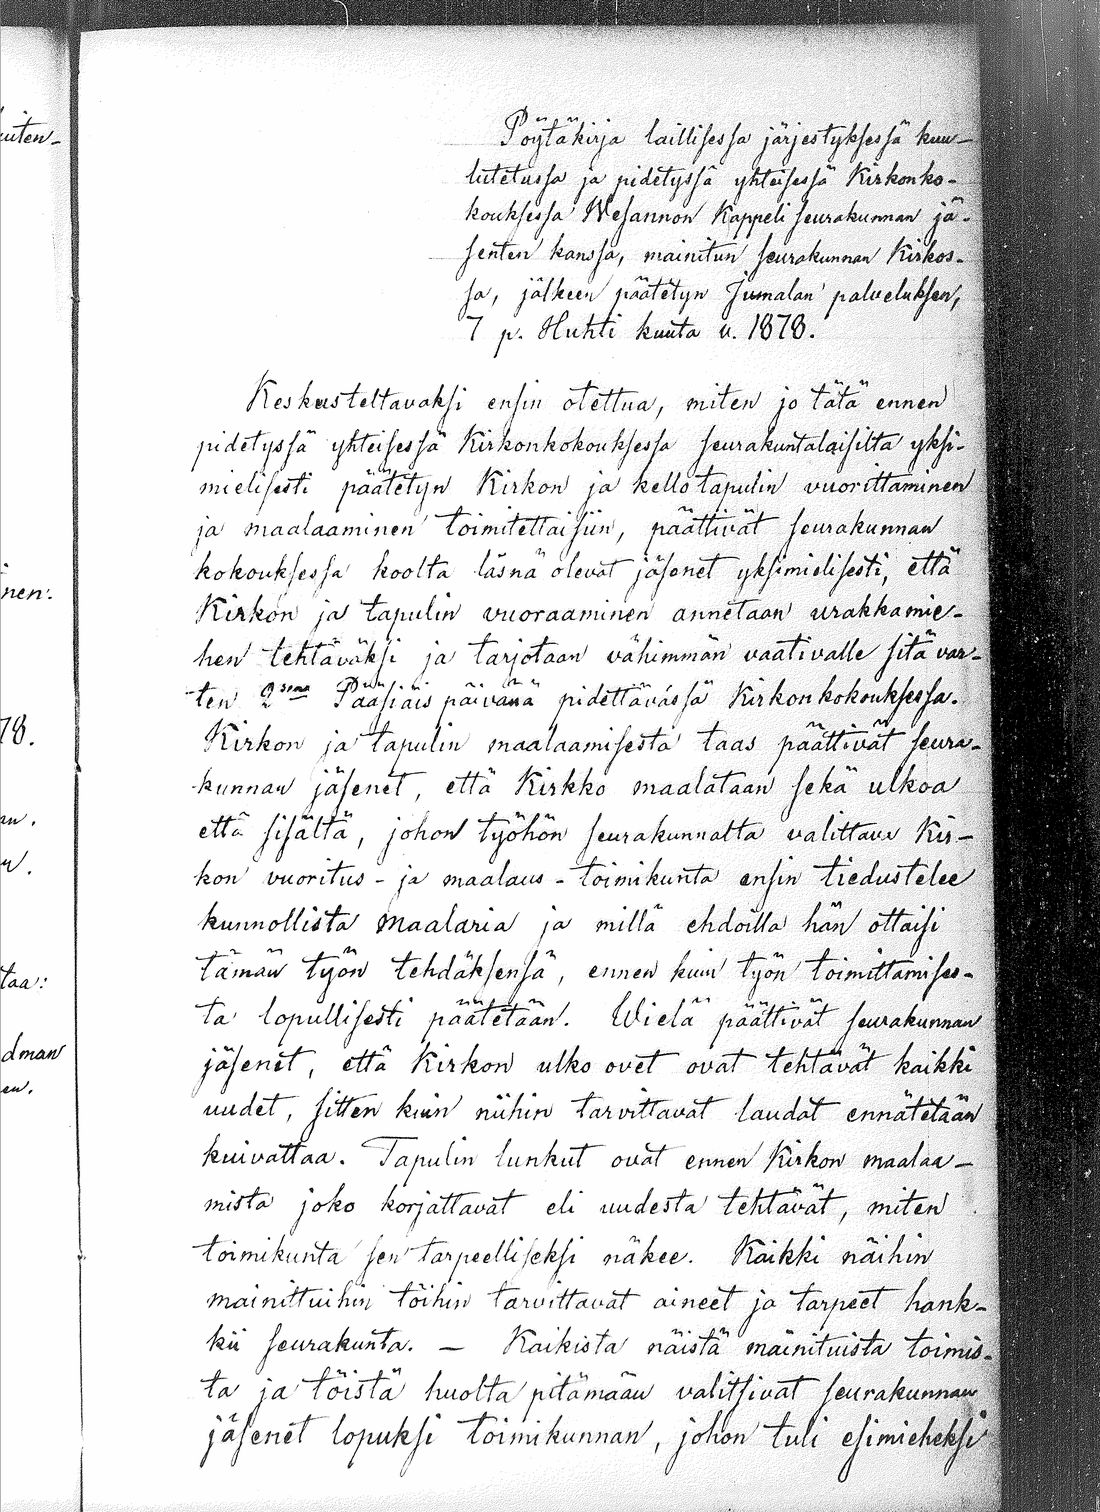 uiten-
nen.
78.
an.
n.
taa:
dman
en.
Pöytäkirja laillisessa järjestyksessä kuu-
lutetussa ja pidetyssä yhteisessä Kirkonko-
kouksessa Wesannon Kappeli seurakunnan jä-
senten kanssa, mainitun seurakunnan Kirkos-
sa, jälkeen päätetyn Jumalan palveluksen,
7 p. Huhti kuuta v. 1878.
Keskusteltavaksi ensin otettua, miten jo tätä ennen
pidetyssä yhteisessä Kirkonkokouksessa seurakuntalaisilta yksi-
mielisesti päätetyn Kirkon ja kellotapulin vuorittaminen
ja maalaaminen toimitettaisiin, päättivät seurakunnan
kokouksessa koolta läsnä olevat jäsenet yksimielisesti, että
Kirkon ja tapulin vuoraaminen annetaan urakkamie-
hen tehtäväksi ja tarjotaan vähimmän vaativalle sitä var-
ten 2sna Pääsiäis päivänä pidettävässä Kirkonkokouksessa.
Kirkon ja tapulin maalaamisesta taas päättivät seura-
kunnan jäsenet, että Kirkko maalataan sekä ulkoa
että sisältä, johon työhön seurakunnatta valittava Kir-
kon vuoritus- ja maalaus-toimikunta ensin tiedustelee
kunnollista maalaria ja millä ehdoilla hän ottaisi
tämän työn tehdäksensä, ennen kuin työn toimittamises-
ta lopullisesti päätetään. Wielä päättivät seurakunnan
jäsenet, että Kirkon ulko ovet ovat tehtävät kaikki
uudet, sitten kuin niihin tarvittavat laudat ennätetään
kuivattaa. Tapulin lunkut ovat ennen Kirkon maalaa-
mista joko korjattavat eli uudesta tehtävät, miten
toimikunta sen tarpeelliseksi näkee. Kaikki näihin
mainittuihin töihin tarvittavat aineet ja tarpeet hank-
kii seurakunta. - Kaikista näistä mainituista toimis-
ta ja töistä huolta pitämään valitsivat seurakunnan
jäsenet lopuksi toimikunnan, johon tuli esimieheksi